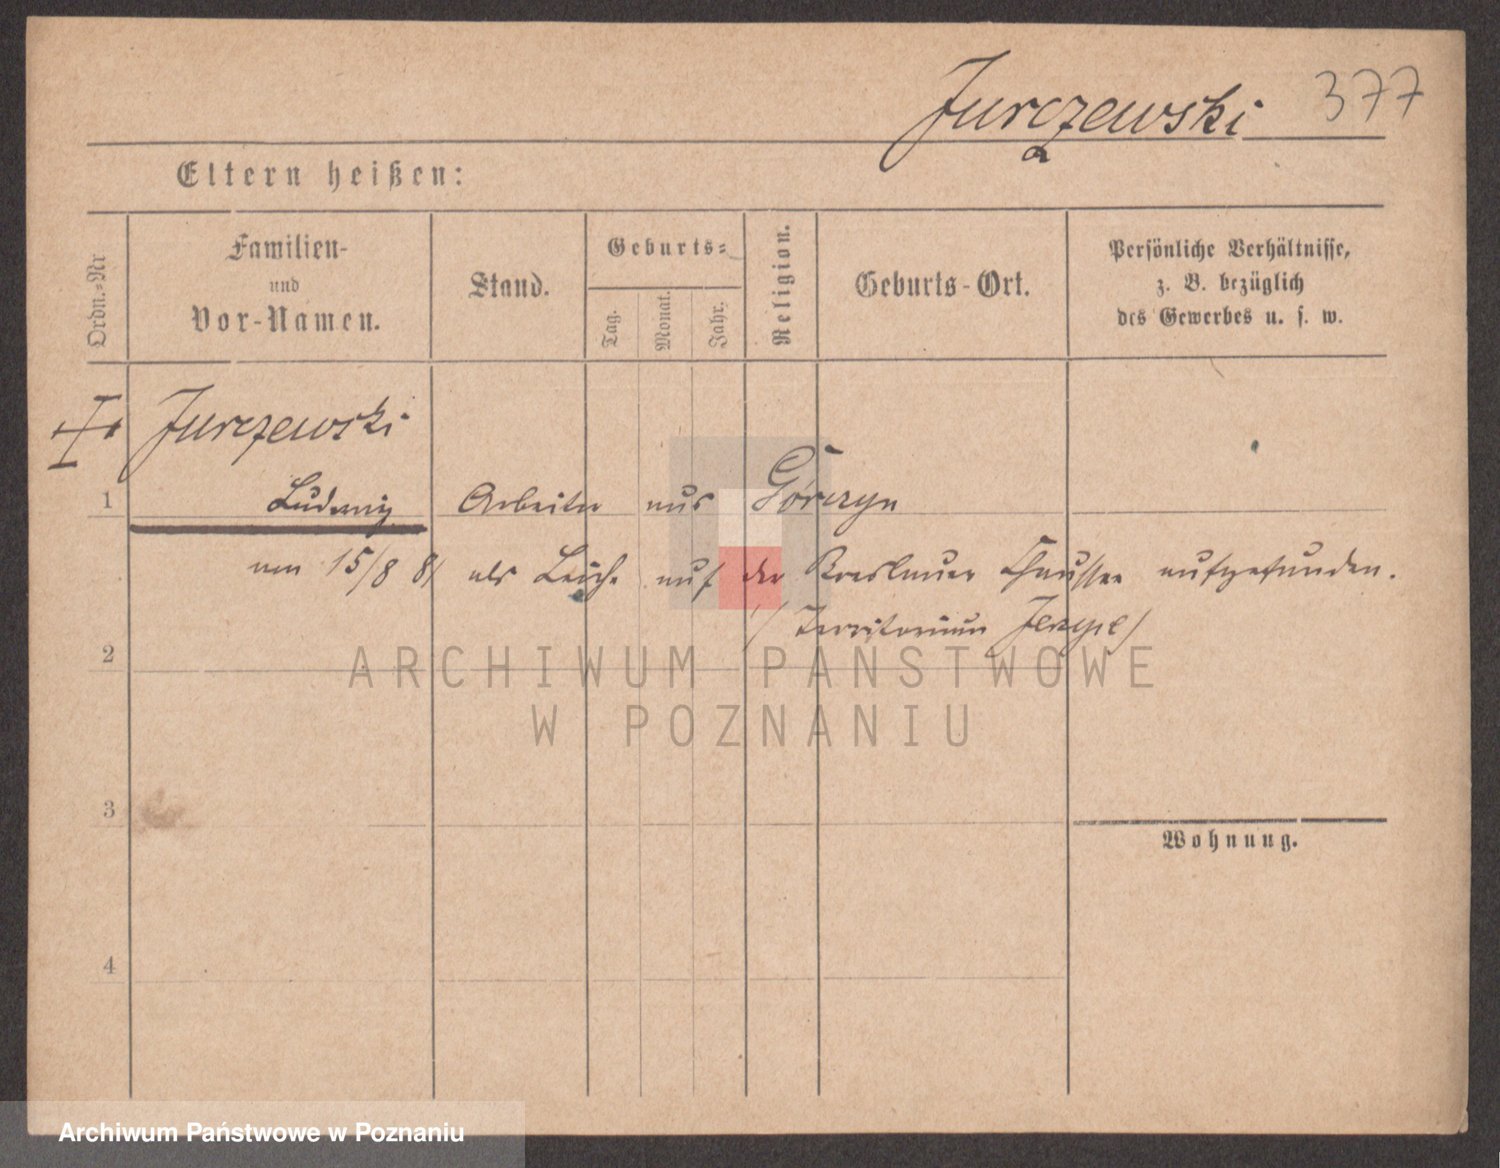 Jurczewski 377
a
Eltern heißen:
Ordn.-Nr
Familien-
und
Vor-Namen.
Stand.
Geburts-
Tag.
Monat.
Jahr.
Religion.
Geburts-Ort.
Persönliche Verhältnisse,
z. B. bezüglich
des Gewerbes u. s. w.
Jurczewski
1 Ludwig Arbeiter aus Górczyn
am 15/8 81 als Leiche auf der Breslauer Chaussee aufgefunden.
/Territorium Jerzyce/
2
ARCHIWUM PAŃSTWOWE
W POZNANIU
3
Wohnung.
4
Archiwum Państwowe w Poznaniu